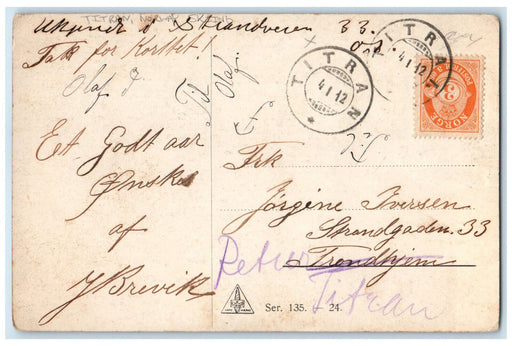 TITRAN, NORWAY
Ukjendt i Strandveien 33.
Tak for Kortet!
Olaf
Til
Olaf
TITRAN
4 I 12
TITRAN
4 I 12
NORGE
3
Et Godt aar
Ønskes
af
J Brevik
Til
Frk
Jørgine Iversen
Strandgaden. 33
Trondhjem
Retur
Titran
Ser. 135. — 24.